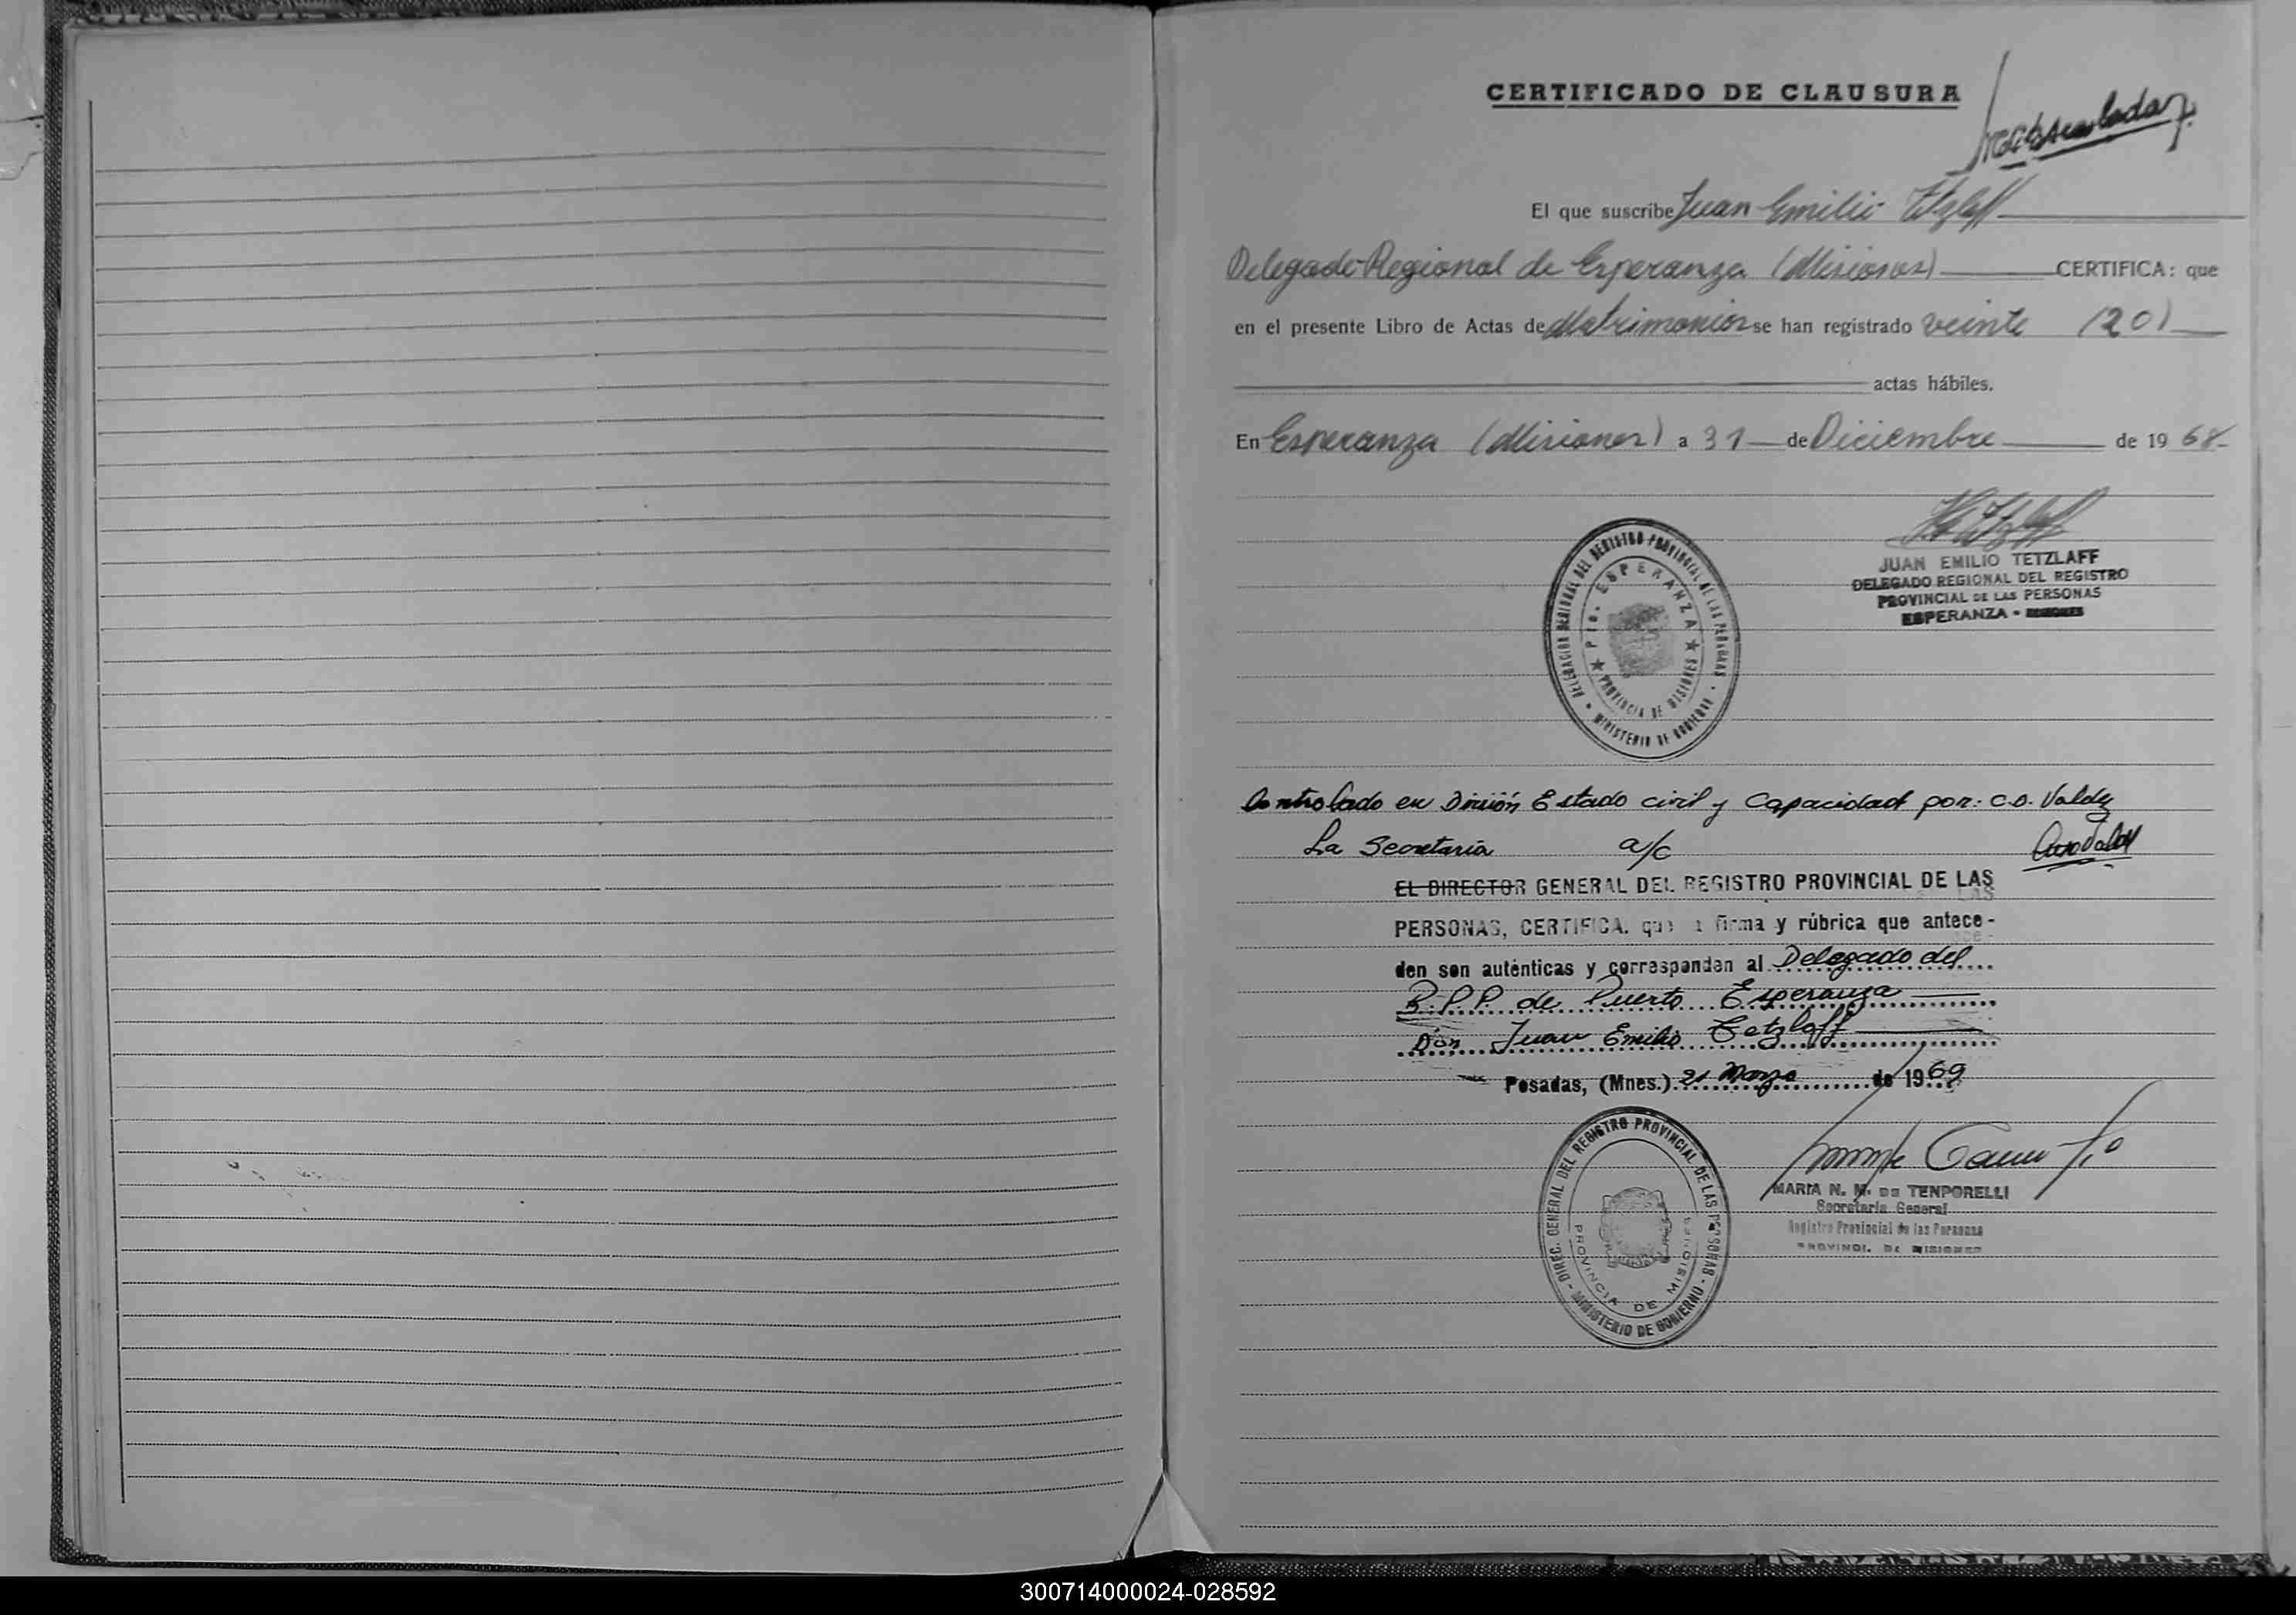 CERTIFICADO DE CLAUSURA
El que suscribe Juan Emilio Tetzlaff
Delegado Regional de Esperanza (Misiones) CERTIFICA: que
en el presente Libro de Actas de Matrimonios se han registrado veinte (20)
actas hábiles.
En Esperanza (Misiones) a 31 de Diciembre de 1968
JUAN EMILIO TETZLAFF
DELEGADO REGIONAL DEL REGISTRO
PROVINCIAL DE LAS PERSONAS
ESPERANZA -
DELEGACION REGIONAL DEL REGISTRO PROVINCIAL DE LAS PERSONAS
MINISTERIO DE GOBIERNO
Pto. ESPERANZA
PROVINCIA DE MISIONES
Controlado en División Estado civil y Capacidad por: C.D. Valdez
La Secretaria a/c
EL DIRECTOR GENERAL DEL REGISTRO PROVINCIAL DE LAS
PERSONAS, CERTIFICA. que la firma y rúbrica que antece-
den son auténticas y corresponden al Delegado del
R.P.P. de Puerto Esperanza
Don Juan Emilio Tetzlaff
Posadas, (Mnes.) 21 Marzo de 1969
DIREC. GENERAL DEL REGISTRO PROVINCIAL DE LAS PERSONAS
MINISTERIO DE GOBIERNO
PROVINCIA DE MISIONES
MARIA N. M. DE TENPORELLI
Secretaria General
Registro Provincial de las Personas
PROVINCI. DE MISIONES
300714000024-028592